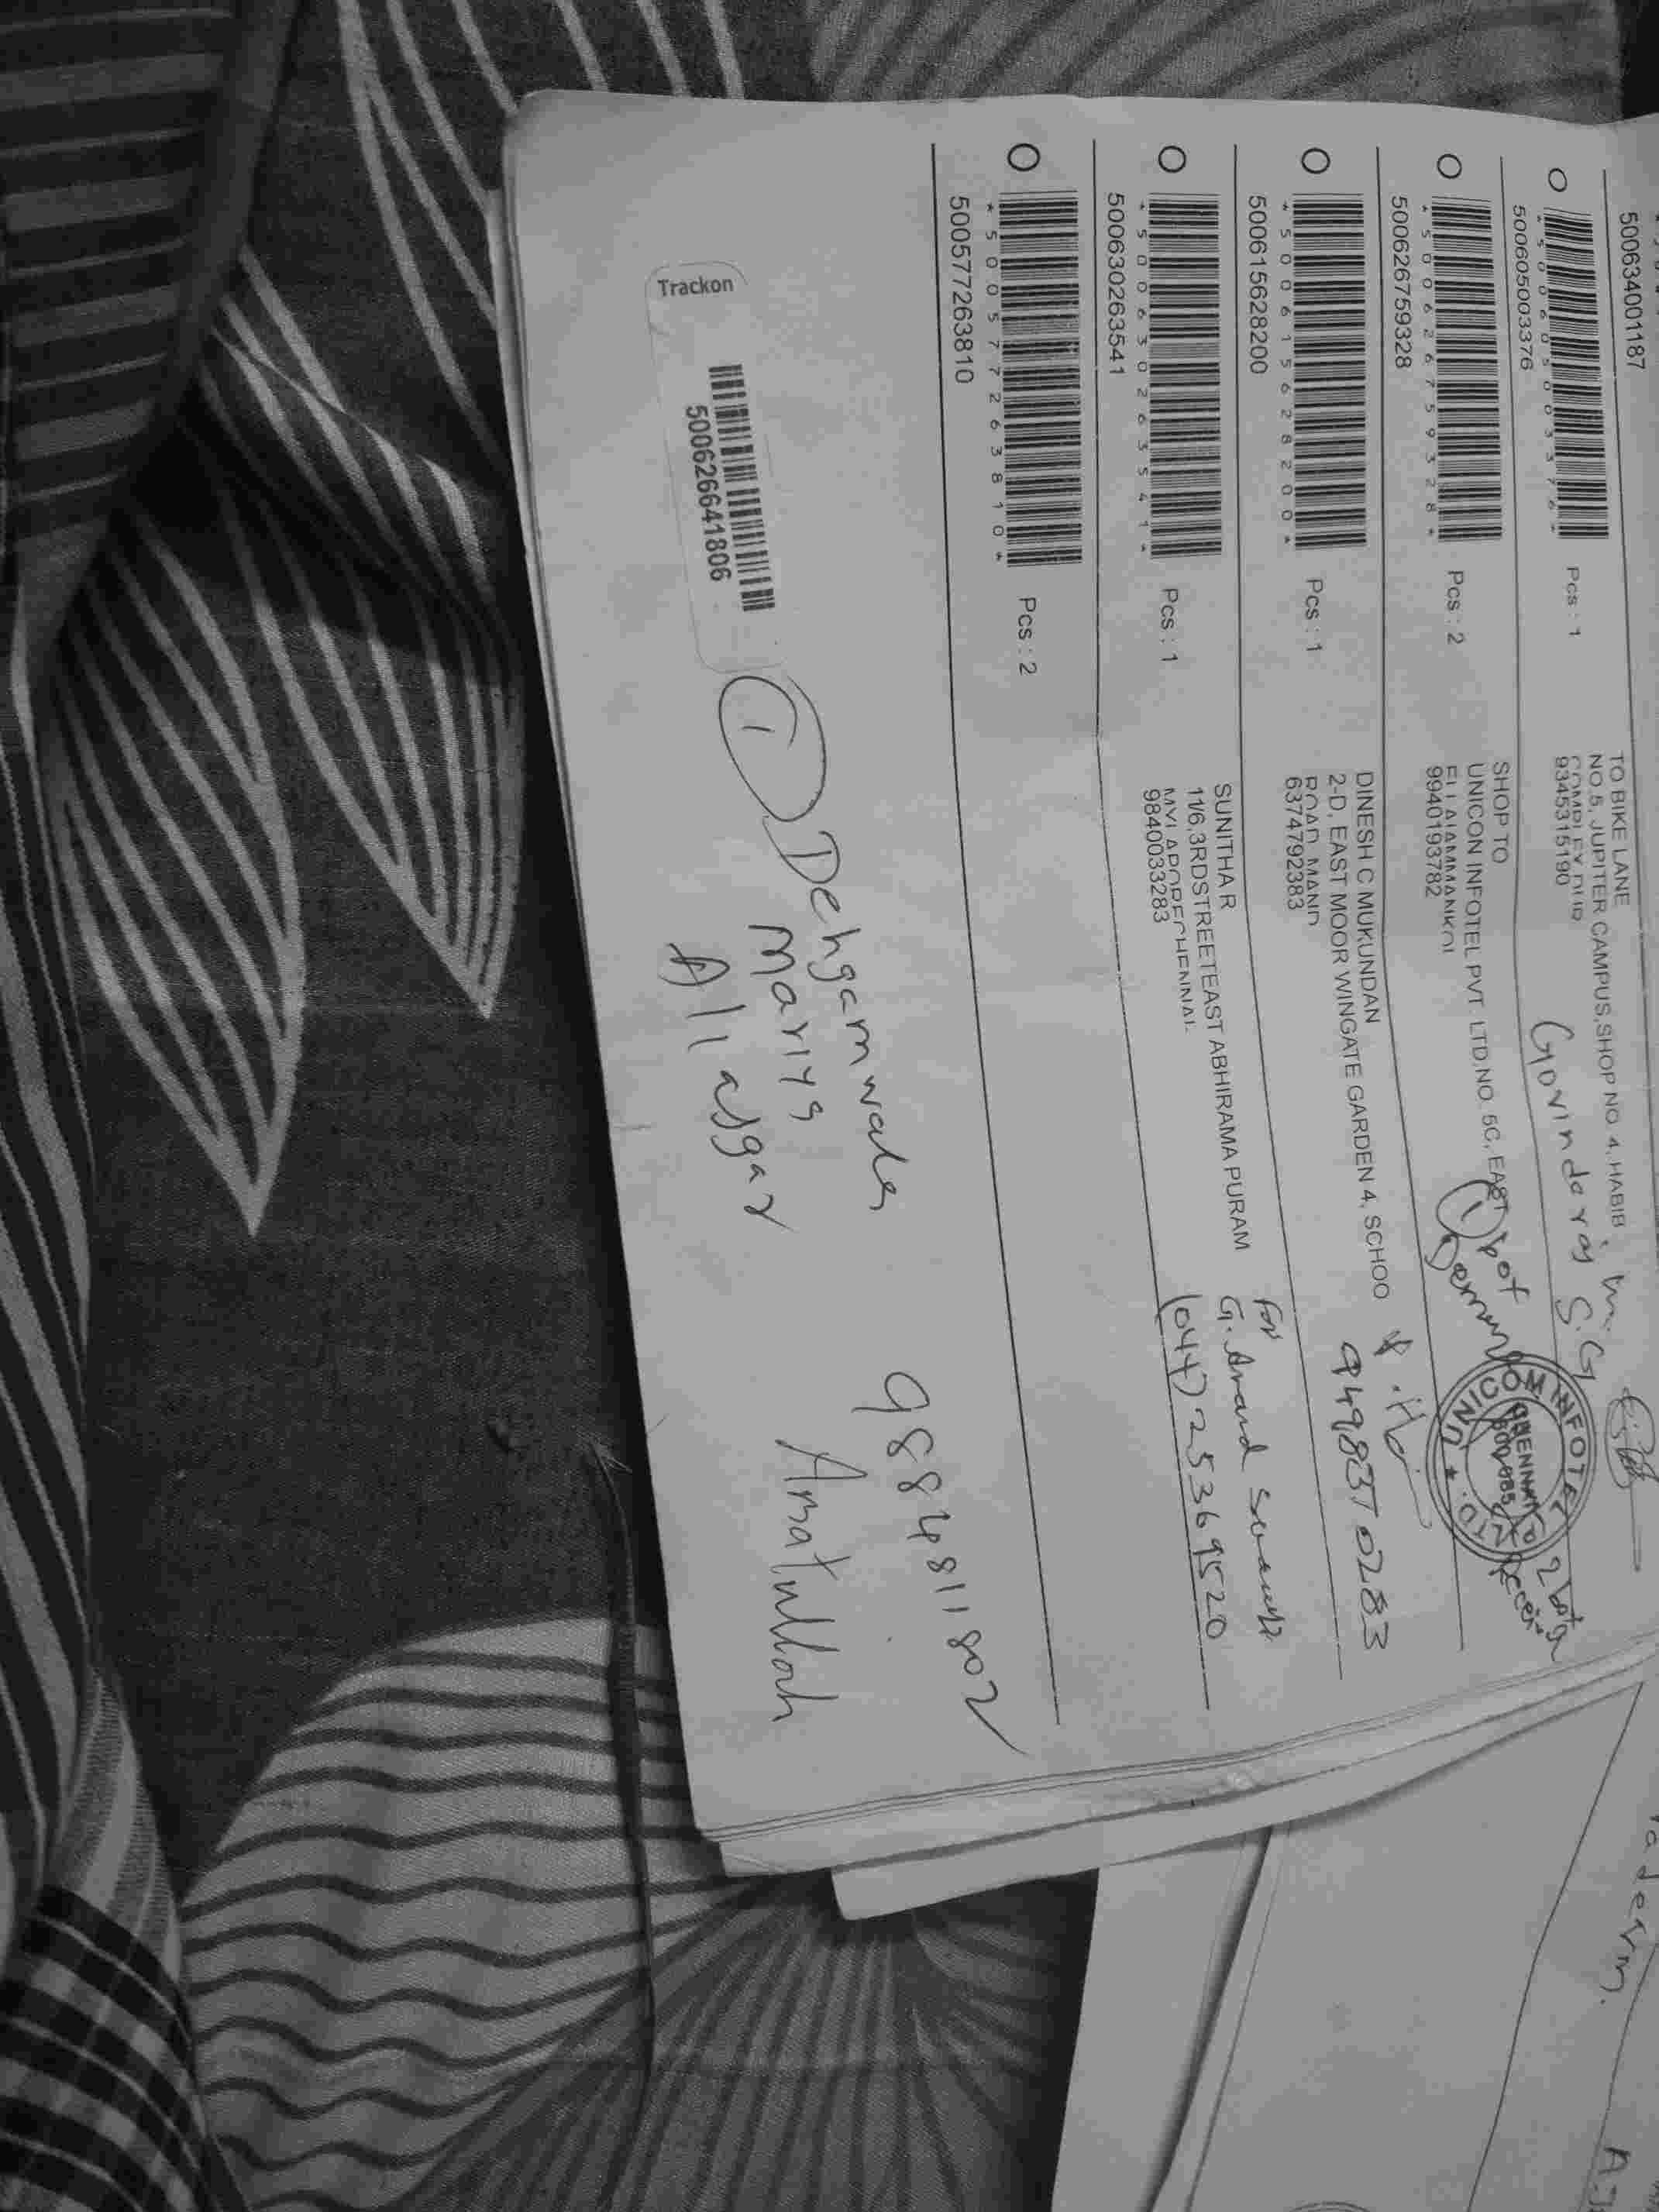 500634001187
TO BIKE LANE
NO.5, JUPITER CAMPUS,SHOP NO. 4, HABIB
*500605003376*
Pcs : 1
9345315190
500605003376
Govindaraj S.G
SHOP TO
UNICON INFOTEL PVT. LTD,NO. 5C, EAST
*500626759328*
Pcs : 2
ELLAIAMMANKOI
9940193782
500626759328
UNICOM INFOTEL
CHENNAI
600 085
LTD.
DINESH C MUKUNDAN
2-D, EAST MOOR WINGATE GARDEN 4, SCHOO
*500615628200*
Pcs : 1
ROAD MAND
6374792383
9498370283
500615628200
SUNITHA R
11/6,3RDSTREETEAST ABHIRAMA PURAM
*500630263541*
Pcs : 1
MYLAPORECHENNAI-
9840033283
For
G. Anand
(044) 25369520
500630263541
*500577263810*
Pcs : 2
500577263810
Trackon
500626641806
1
Dehgamwala
Mariya
Ali asgar
9884811802
Amatullah